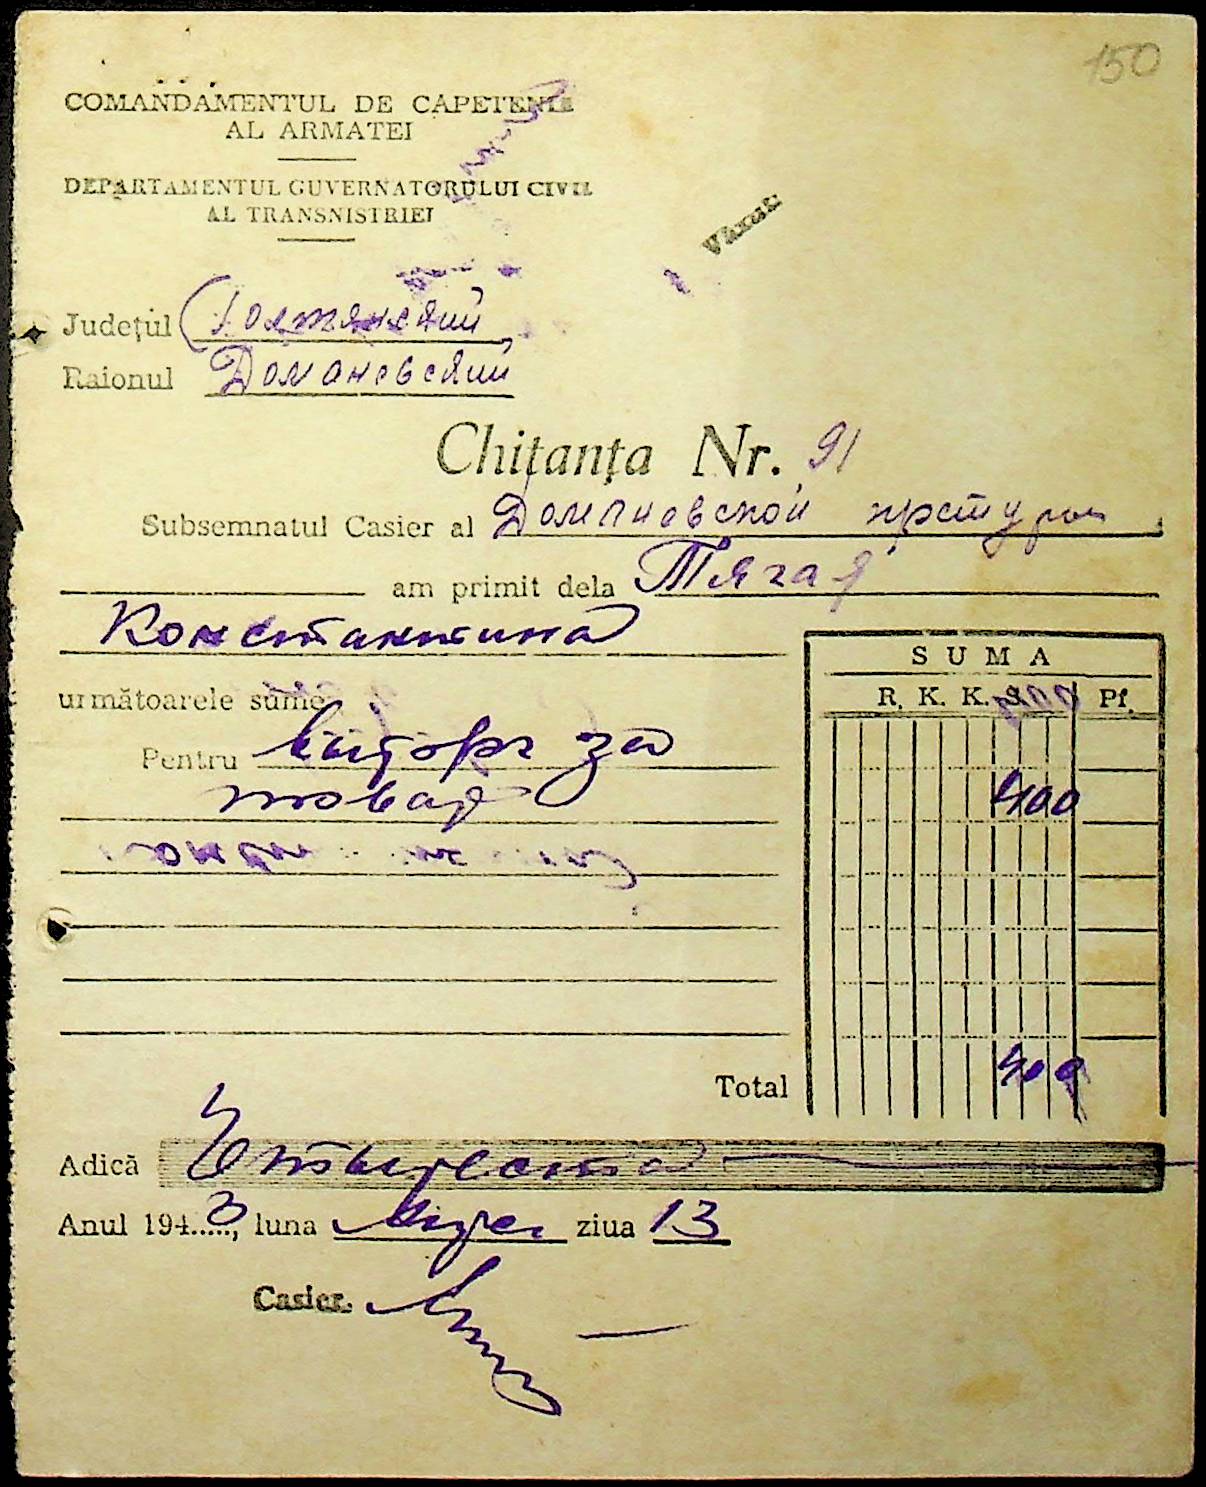 150
COMANDAMENTUL DE CAPETENIE
AL ARMATEI
DEPARTAMENTUL GUVERNATORULUI CIVIL
AL TRANSNISTRIEI
Văzut:
Județul Голтянский
Raionul Доманевский
Chitanța Nr. 91
Subsemnatul Casier al Домановской претуры
am primit dela Тягай
Константина
următoarele sume
Pentru за
товар
SUMA
R. K. K. S. Pf.
400
Total 400
Adică Четыреста
Anul 1943, luna ziua 13
Casier.